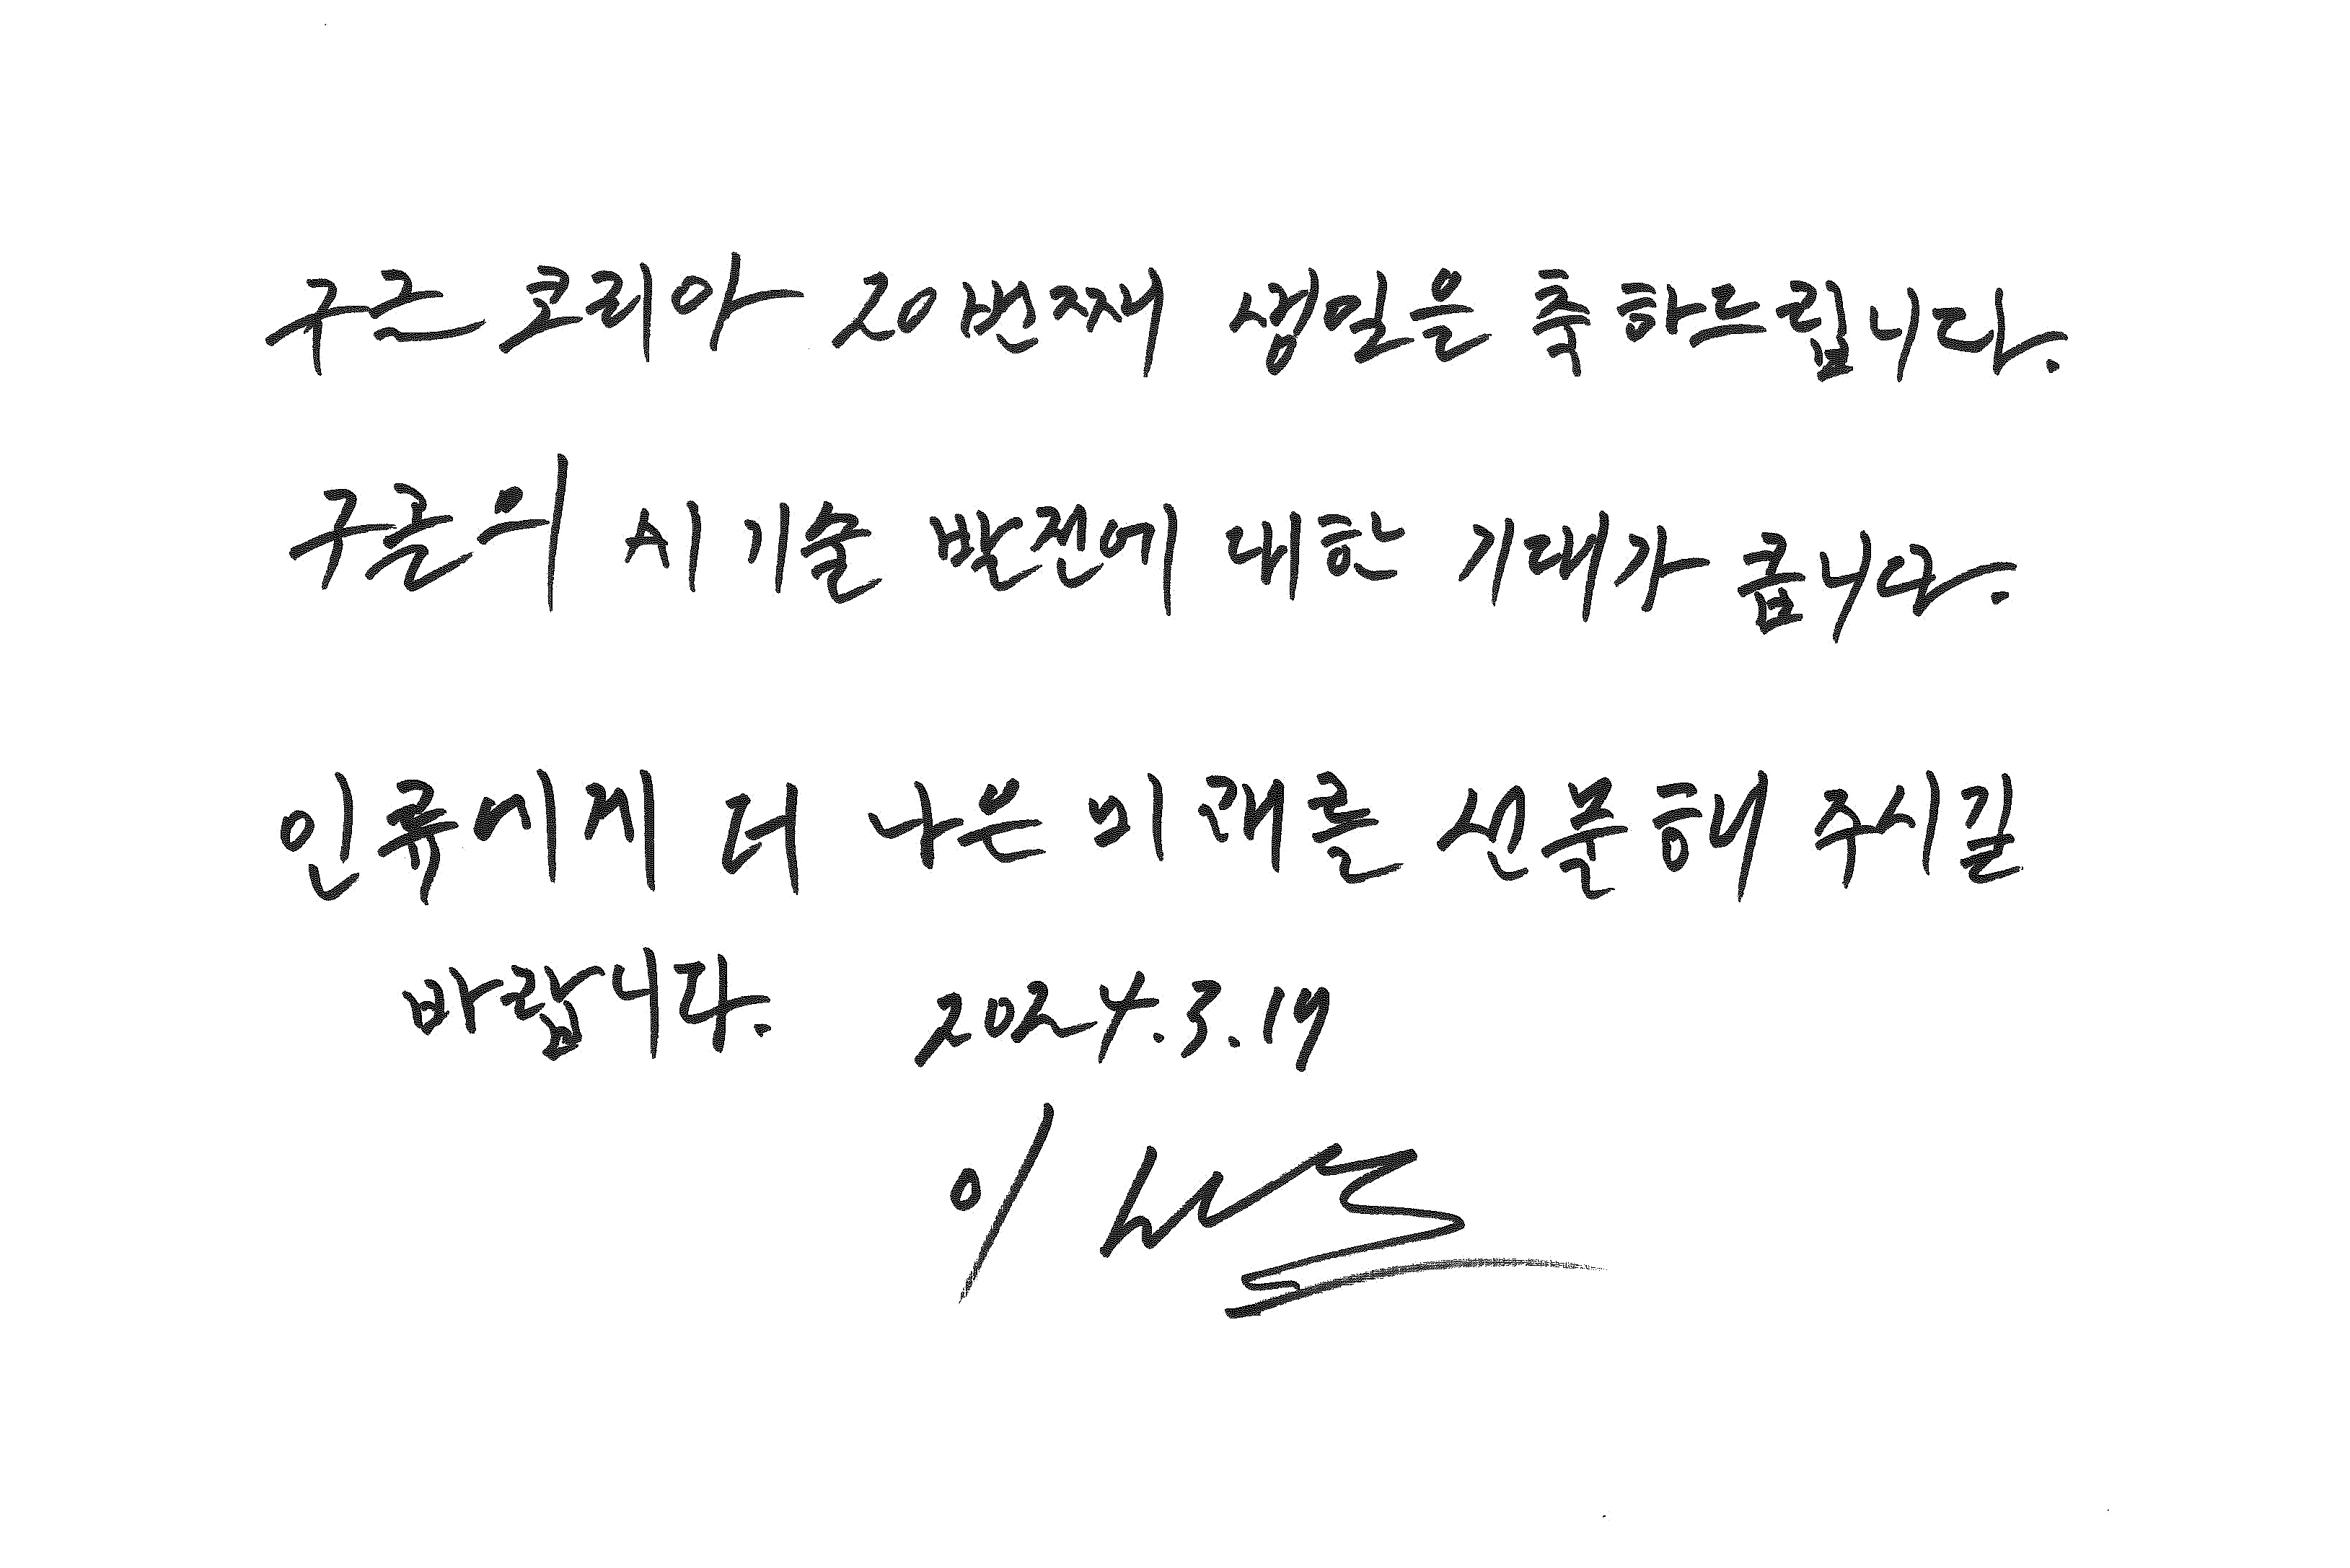 구글 코리아 20번째 생일을 축하드립니다.
구글의 AI 기술 발전에 대한 기대가 큽니다.
인류에게 더 나은 미래를 선물해 주시길
바랍니다. 2024.3.19
이